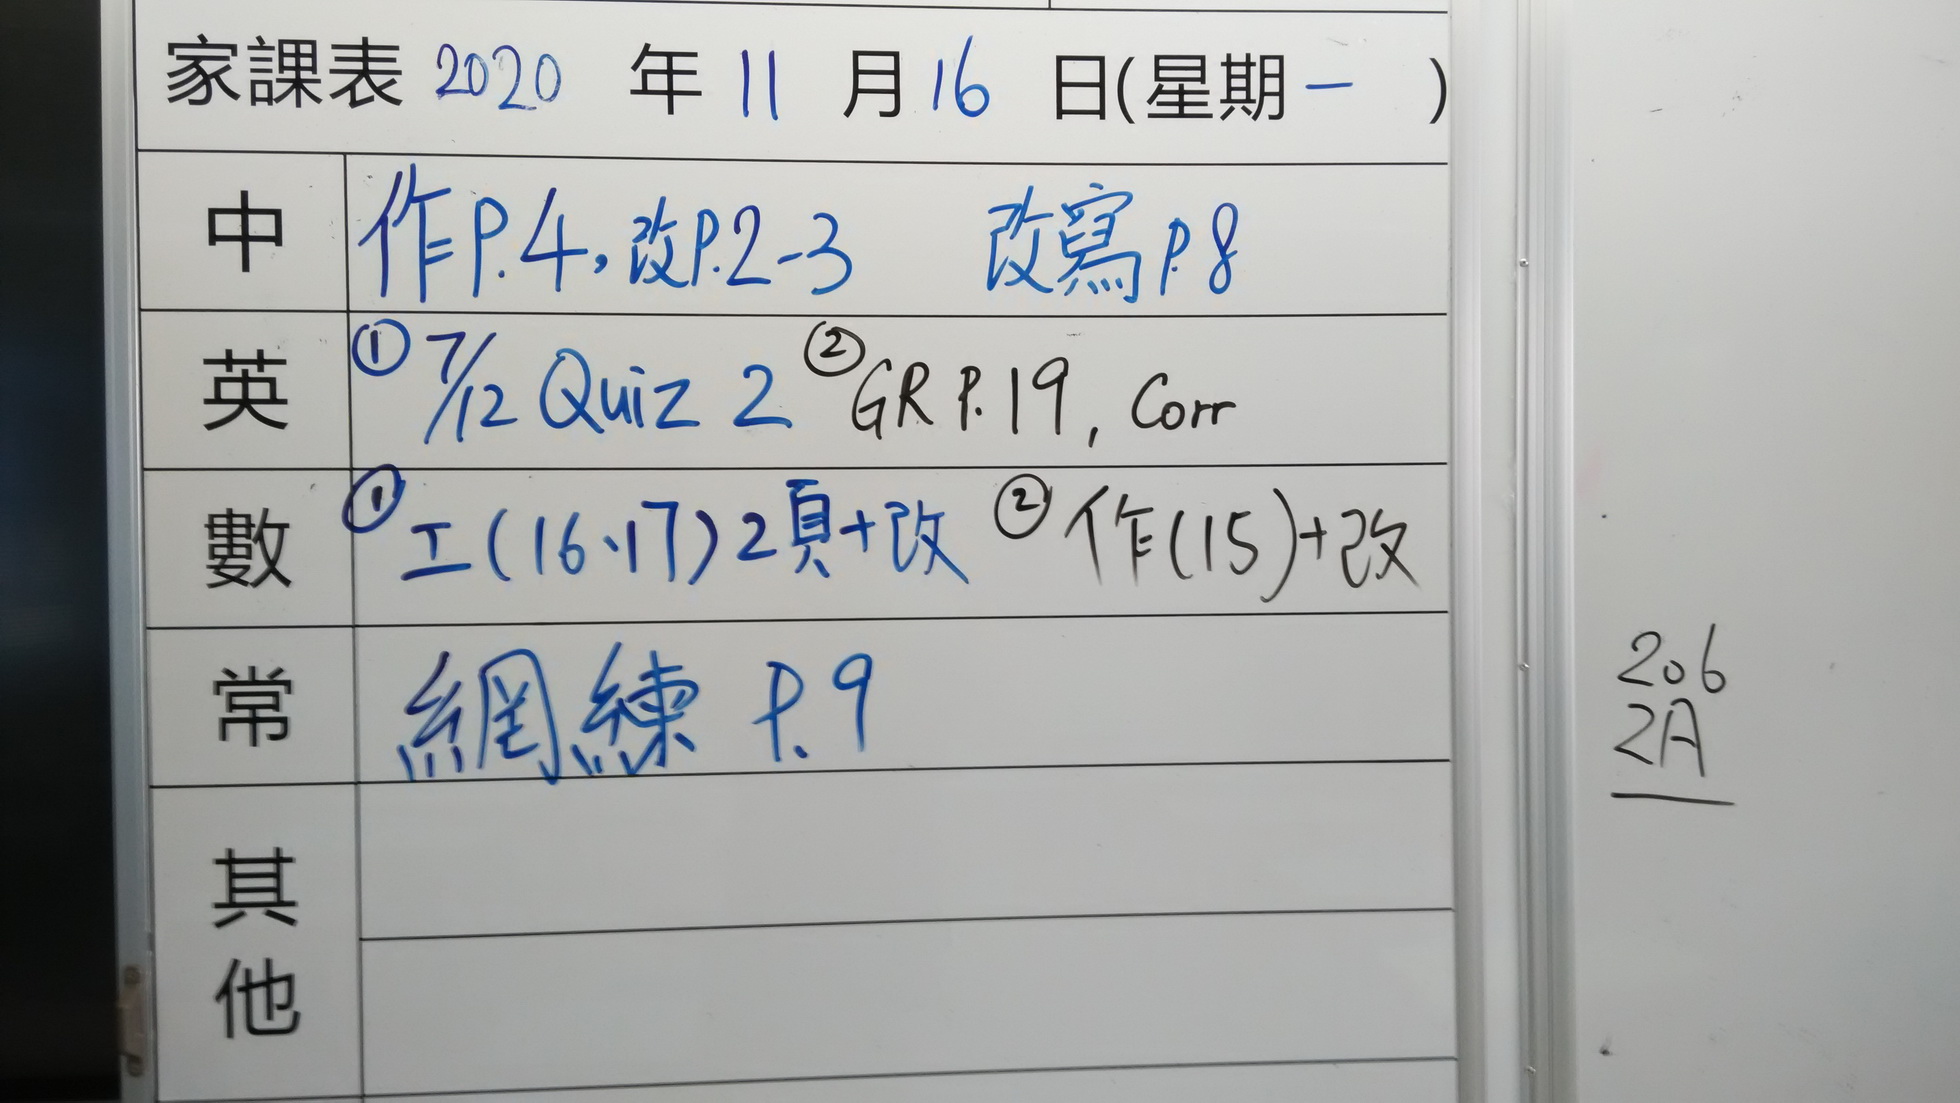 家課表 2020 年 11 月 16 日(星期一 )
中 作P.4, 改P.2-3 改寫P.8
英 ① 7/12 Quiz 2 ② GR P.19, Corr
數 ① 工(16、17)2頁+改 ② 作(15)+改
常 網練 P.9
其他
206
2A